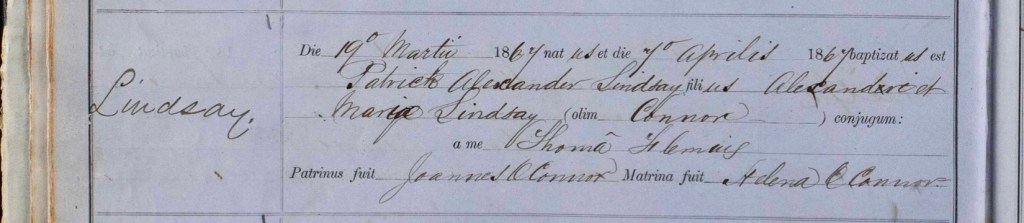 Lindsay.
Die 19º Martii 1867 natus et die 7º Aprilis 1867 baptizatus est
Patrick Alexander Lindsay filius Alexandri et
Maria Lindsay (olim Connor ) conjugum:
a me Thomâ Fleming
Patrinus fuit Joannes O Connor Matrina fuit Helena O Connor